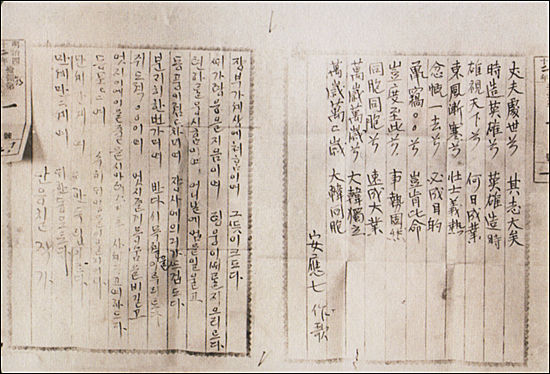 丈夫處世兮 其志大矣
時造英雄兮 英雄造時
雄視天下兮 何日成業
東風漸寒兮 壯士義熱
念慨一去兮 必成目的
鼠竊○○兮 豈肯比命
豈度至此兮 事勢固然
同胞同胞兮 速成大業
萬歲萬歲兮 大韓獨立
萬歲萬〻歲 大韓同胞
安應七 作歌
장부가세상에쳐함이여 그뜻이크도다
ᄯᅢ가영웅을지음이여 영웅이ᄯᅢ를지으리로다
천하를웅시함이여 어니날에업을일울고
동풍이졈차미여 장사에의기가ᄯᅳ겁도다
분개히한번가미여 반다시목젹을이루리로다
쥐도적○○이여 엇지즐겨목숨을비길고
엇지이에이를줄을시아려스리요 사세가고여하도다
동포동포여 속히대업을이룰지어다
만세만세여 대한독립이로다
만세만만세여 대한동포로다
안응칠 작가
明治四
一
號